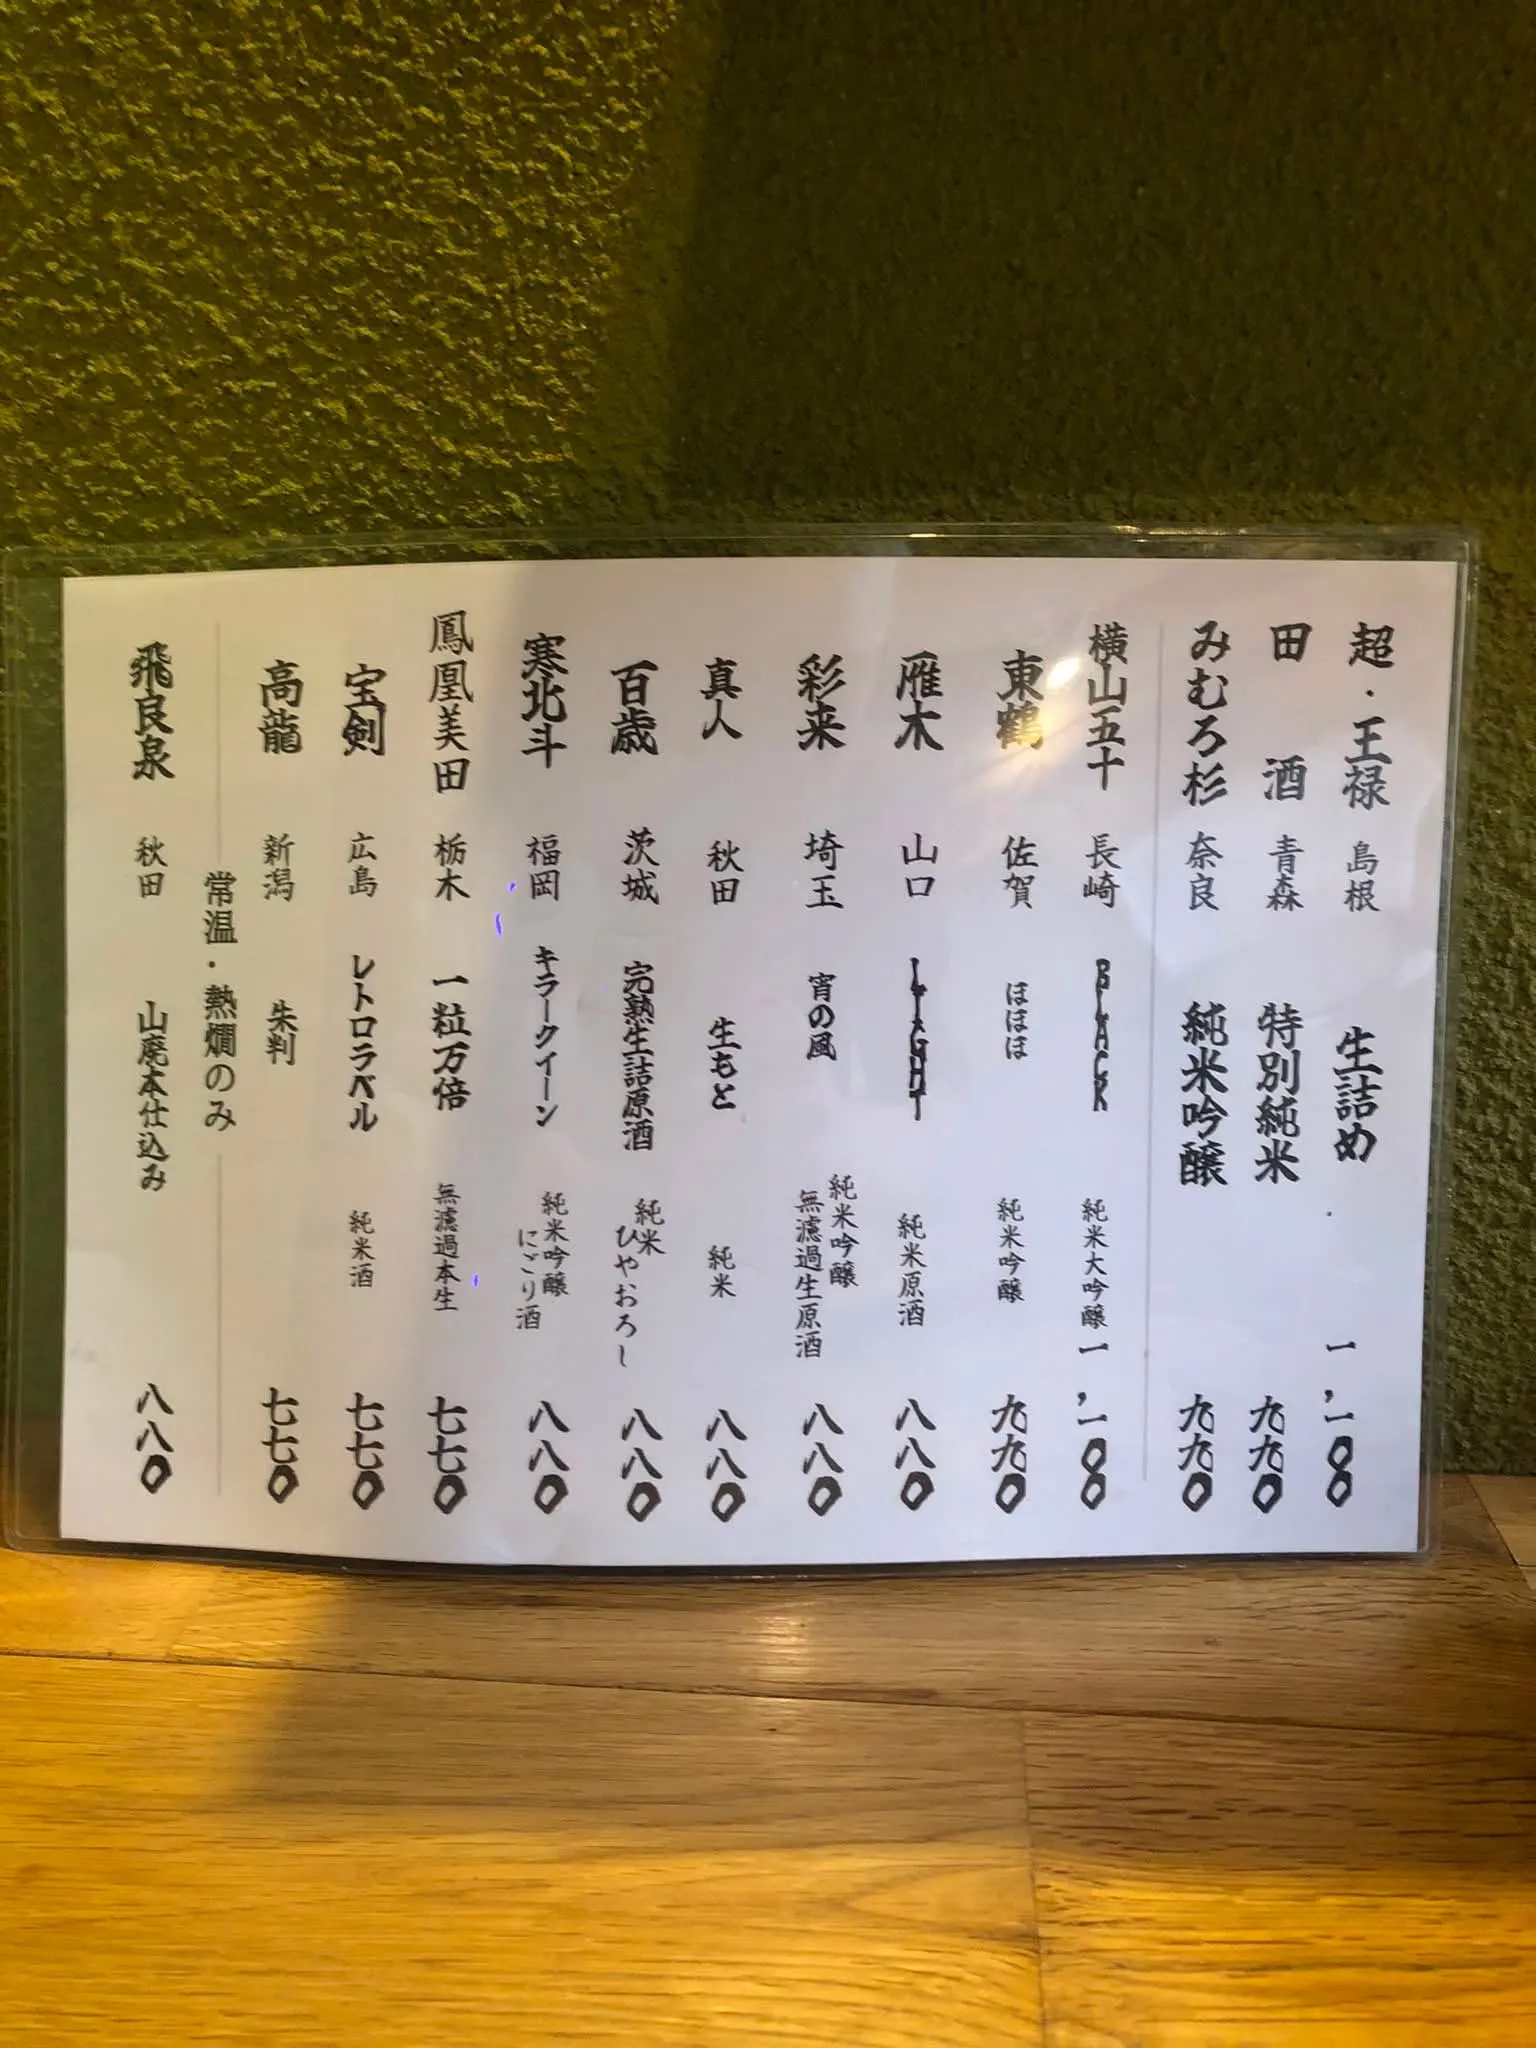 超・王禄 島根 生詰め 一,一〇〇
田酒 青森 特別純米 九九〇
みむろ杉 奈良 純米吟醸 九九〇
横山五十 長崎 BLACK 純米大吟醸 一,一〇〇
東鶴 佐賀 ほほほ 純米吟醸 九九〇
雁木 山口 LIGHT 純米原酒 八八〇
彩来 埼玉 宵の風 純米吟醸 無濾過生原酒 八八〇
真人 秋田 生もと 純米 八八〇
百歳 茨城 完熟生詰原酒 純米 ひやおろし 八八〇
寒北斗 福岡 キラークイーン 純米吟醸 にごり酒 八八〇
鳳凰美田 栃木 一粒万倍 無濾過本生 七七〇
宝剣 広島 レトロラベル 純米酒 七七〇
高龍 新潟 朱判 七七〇
常温・熱燗のみ
飛良泉 秋田 山廃本仕込み 八八〇